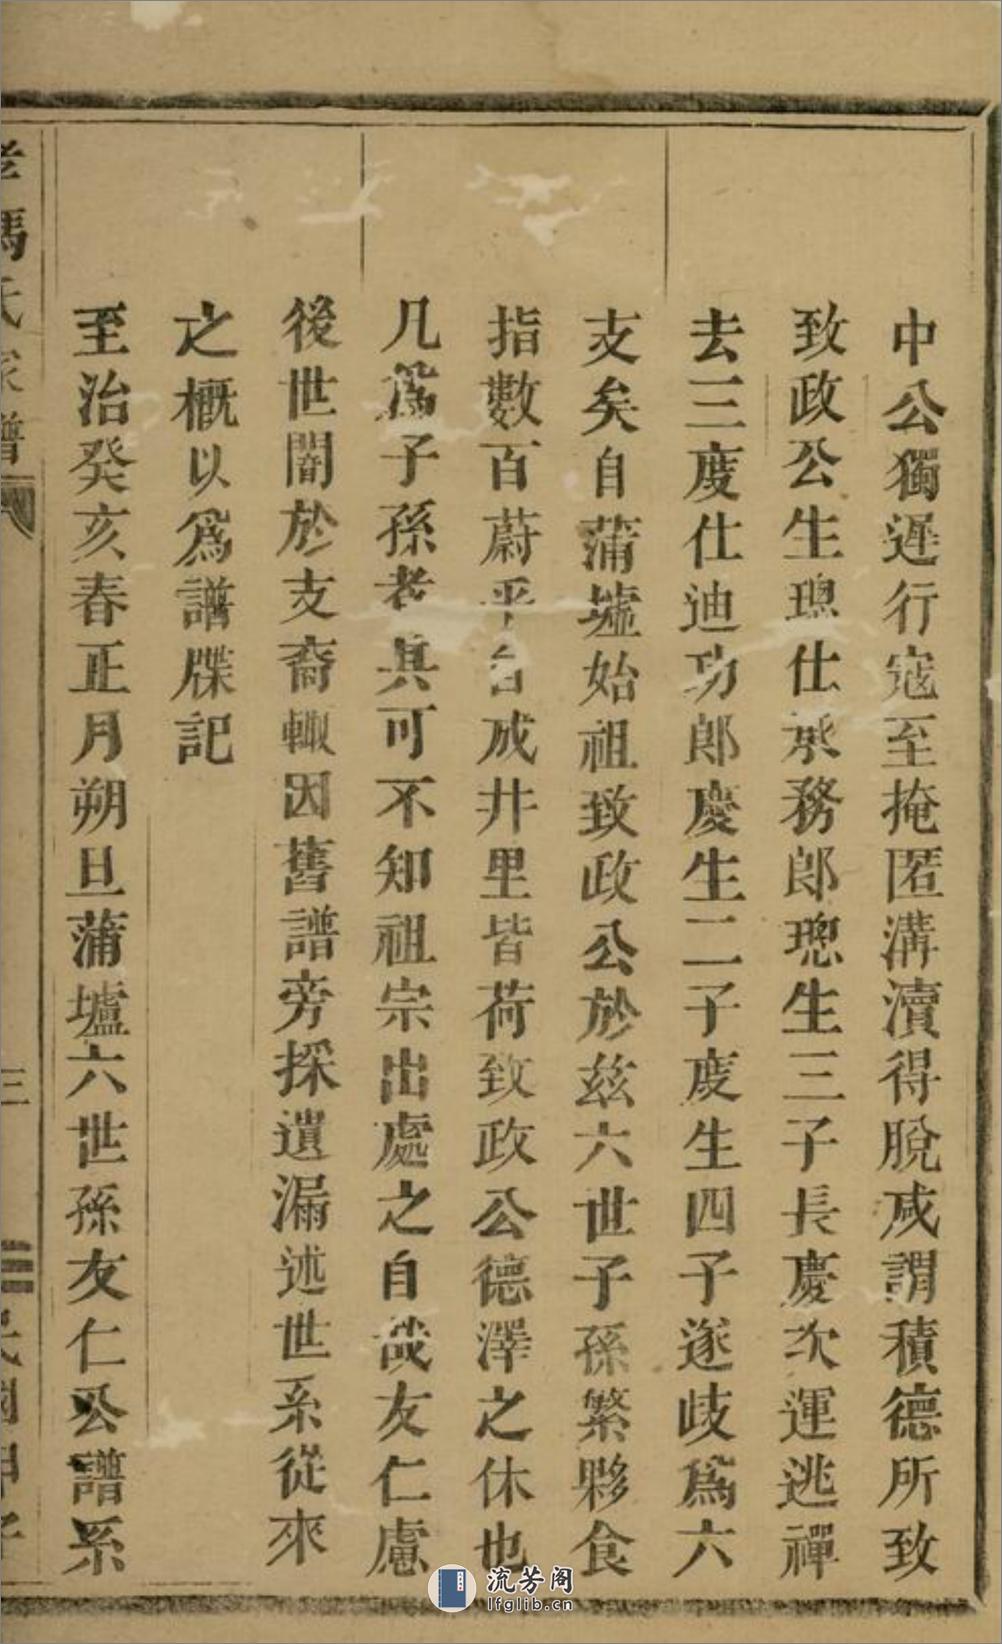 中公獨遲行寇至掩匿溝瀆得脫咸謂積德所致
致政公生璁仕承務郎璁生三子長慶次運逃禪
去三度仕迪功郎慶生二子度生四子遂歧爲六
支矣自蒲墟始祖致政公於茲六世子孫繁夥食
指數百蔚乎自成井里皆荷致政公德澤之休也
凡爲子孫者其可不知祖宗出處之自哉友仁慮
後世闇於支裔輙因舊譜旁採遺漏述世系從來
之概以爲譜牒記
至治癸亥春正月朔旦蒲墟六世孫友仁公譜系
馮氏家譜
三
民國甲子
流芳阁
lfglib.cn